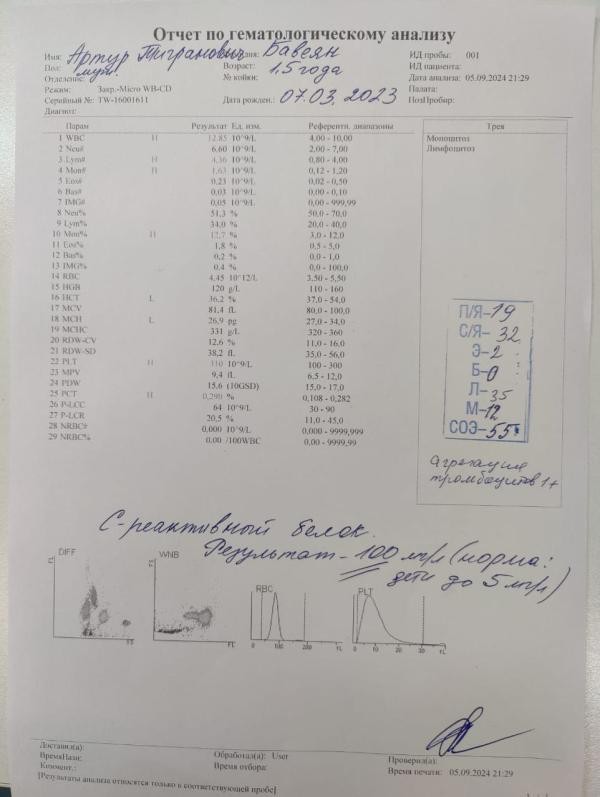 Отчет по гематологическому анализу
Имя: Артур Тигранович Фамилия: Бавеян ИД пробы: 001
Пол: муж. Возраст: 1,5 года ИД пациента:
Отделение: № койки: Дата анализа: 05.09.2024 21:29
Режим: Закр.-Micro WB-CD Палата:
Серийный №: TW-16001611 Дата рожден.: 07.03.2023 НозПробир:
Диагноз:
Парам Результат Ед. изм. Референтн. диапазоны Трев
1 WBC H 12.85 10^9/L 4,00 - 10,00 Моноцитоз
2 Neu# 6,60 10^9/L 2,00 - 7,00 Лимфоцитоз
3 Lym# H 4,36 10^9/L 0,80 - 4,00
4 Mon# H 1,63 10^9/L 0,12 - 1,20
5 Eos# 0,23 10^9/L 0,02 - 0,50
6 Bas# 0,03 10^9/L 0,00 - 0,10
7 IMG# 0,05 10^9/L 0,00 - 999,99
8 Neu% 51,3 % 50,0 - 70,0
9 Lym% 34,0 % 20,0 - 40,0
10 Mon% H 12,7 % 3,0 - 12,0
11 Eos% 1,8 % 0,5 - 5,0
12 Bas% 0,2 % 0,0 - 1,0
13 IMG% 0,4 % 0,0 - 100,0
14 RBC 4,45 10^12/L 3,50 - 5,50
15 HGB 120 g/L 110 - 160
16 HCT L 36,2 % 37,0 - 54,0
17 MCV 81,4 fL 80,0 - 100,0
18 MCH L 26,9 pg 27,0 - 34,0
19 MCHC 331 g/L 320 - 360
20 RDW-CV 12,6 % 11,0 - 16,0
21 RDW-SD 38,2 fL 35,0 - 56,0
22 PLT H 310 10^9/L 100 - 300
23 MPV 9,4 fL 6,5 - 12,0
24 PDW 15,6 (10GSD) 15,0 - 17,0
25 PCT H 0,290 % 0,108 - 0,282
26 P-LCC 64 10^9/L 30 - 90
27 P-LCR 20,5 % 11,0 - 45,0
28 NRBC# 0,000 10^9/L 0,000 - 9999,999
29 NRBC% 0,00 /100WBC 0,00 - 9999,99
П/Я-19
С/Я- 32
Э-2
Б-0
Л-35
М-12
СОЭ-55
агрегация
тромбоцитов 1+
С-реактивный белок.
Результат - 100 мг/л (норма:
дети до 5 мг/л)
DIFF WNB RBC PLT
FS FL
FL FS 0 100 200 fL 0 10 20 30 fL
Доставил(а): Обработал(а): User Проверил(а):
ВремяНазн: Время отбора: Время печати: 05.09.2024 21:29
Коммент.:
[Результаты анализа относятся только к соответствующей пробе]